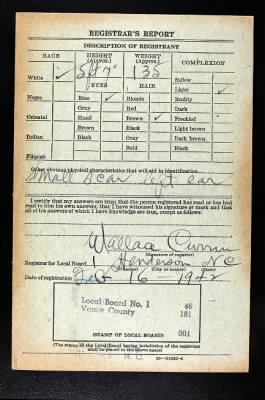 REGISTRAR'S REPORT
DESCRIPTION OF REGISTRANT
RACE HEIGHT (Approx.) WEIGHT (Approx.) COMPLEXION
White ✓ 5 ft 7" 135 Sallow
EYES HAIR Light ✓
Negro Blue ✓ Blonde Ruddy
Gray Red Dark
Oriental Hazel Brown ✓ Freckled
Brown Black Light brown
Indian Black Gray Dark brown
Bald Black
Filipino
Other obvious physical characteristics that will aid in identification
Small scar left ear
I certify that my answers are true; that the person registered has read or has had
read to him his own answers; that I have witnessed his signature or mark and that
all of his answers of which I have knowledge are true, except as follows:
Wallace Currin
(Signature of registrar)
Registrar for Local Board 1 Henderson N C
(Number) (City or county) (State)
Date of registration Feb 16-1942
Local Board No. 1 46
Vance County 181
001
(STAMP OF LOCAL BOARD)
(The stamp of the Local Board having jurisdiction of the registrant
shall be placed in the above space)
N. C.